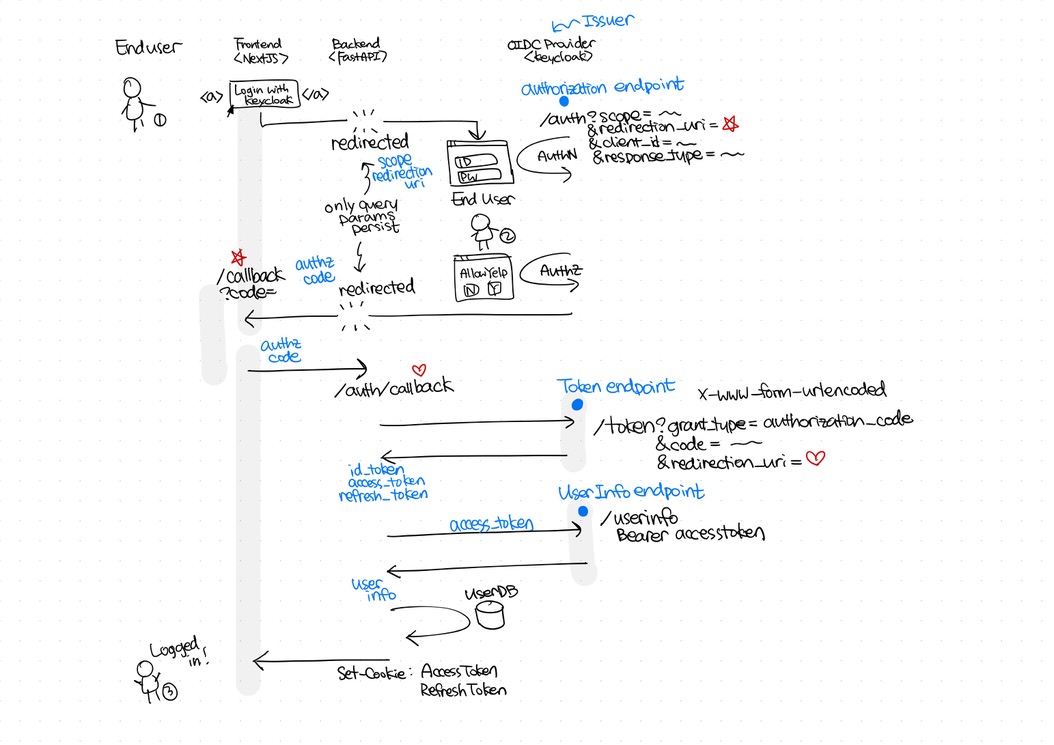 Issuer
End user
Frontend
<NextJS>
Backend
<FastAPI>
OIDC Provider
<keycloak>
<a>
Login with
keycloak
</a>
①
authorization endpoint
/auth?scope=
&redirection_uri=
&client_id=
&response_type=
redirected
scope
redirection
uri
ID
PW
AuthN
only query
params
persist
End User
②
/callback
?code=
authz
code
redirected
Allow Yelp
N Y
AuthZ
authz
code
/auth/callback
Token endpoint
x-www-form-urlencoded
/token?grant_type=authorization_code
&code=
&redirection_uri=
id_token
access_token
refresh_token
UserInfo endpoint
access_token
/userinfo
Bearer accesstoken
user
info
UserDB
Logged
in!
③
Set-Cookie: AccessToken
RefreshToken